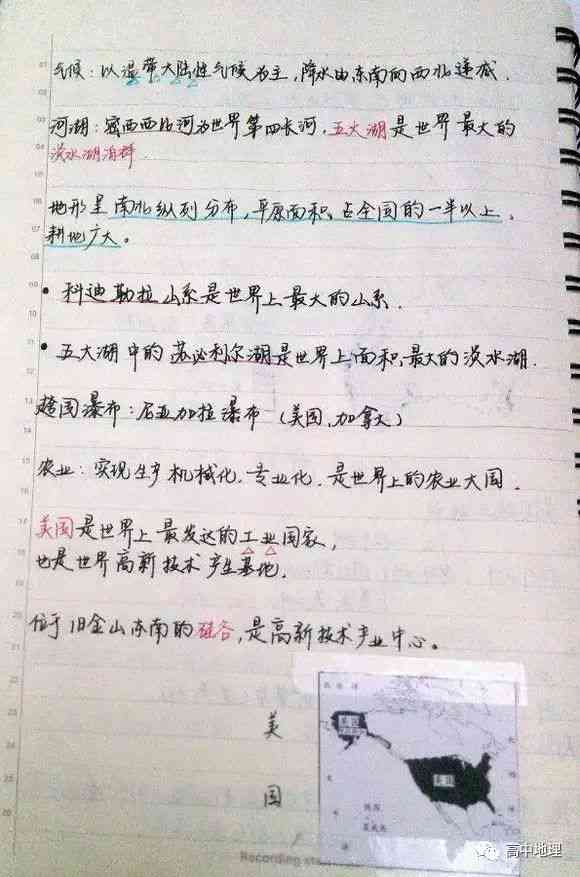 气候：以温带大陆性气候为主，降水由东南向西北递减．
河湖：密西西比河为世界第四长河，五大湖是世界最大的
淡水湖泊群．
地形呈南北纵列分布，平原面积占全国的一半以上，
耕地广大。
• 科迪勒拉山系是世界上最大的山系．
• 五大湖中的苏必利尔湖是世界上面积最大的淡水湖．
跨国瀑布：尼亚加拉瀑布（美国、加拿大）
农业：实现生产机械化、专业化．是世界上的农业大国．
美国是世界上最发达的工业国家，
也是世界高新技术产生基地．
位于旧金山东南的硅谷，是高新技术产业中心。
美
国
美国
Recording
高中地理